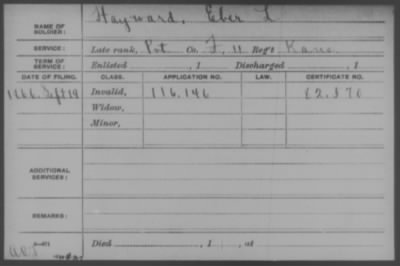 NAME OF SOLDIER: Hayward, Eber L
SERVICE: Late rank, Pvt Co. F, 11 Reg't Kans.
TERM OF SERVICE: Enlisted , 1 Discharged , 1
DATE OF FILING. CLASS. APPLICATION NO. LAW. CERTIFICATE NO.
1866. Sept 19 Invalid, 116.146 82.870
Widow,
Minor,
ADDITIONAL SERVICES:
REMARKS:
Died , 1 , at